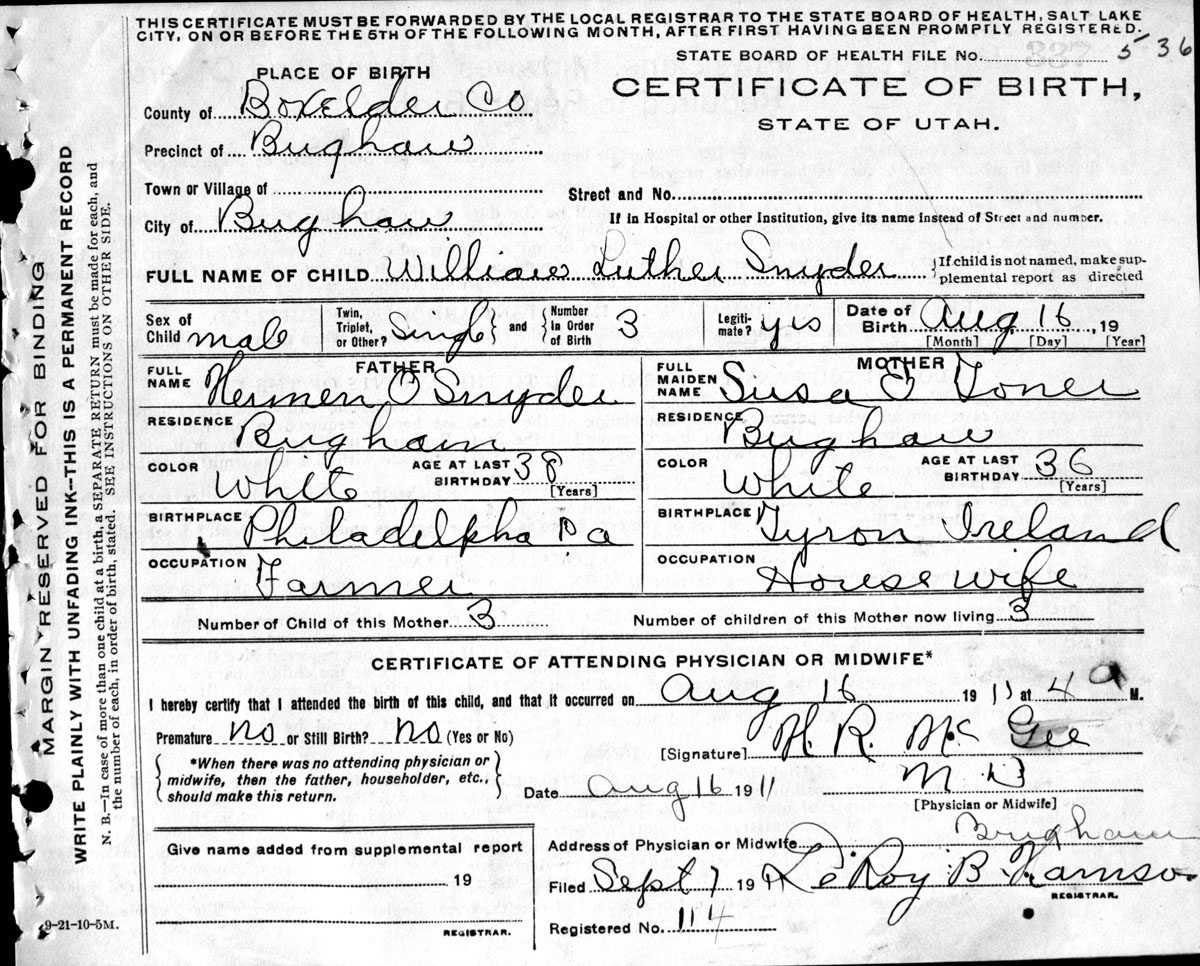 THIS CERTIFICATE MUST BE FORWARDED BY THE LOCAL REGISTRAR TO THE STATE BOARD OF HEALTH, SALT LAKE
CITY, ON OR BEFORE THE 5TH OF THE FOLLOWING MONTH, AFTER FIRST HAVING BEEN PROMPTLY REGISTERED.
STATE BOARD OF HEALTH FILE No. 5 36
PLACE OF BIRTH
CERTIFICATE OF BIRTH,
STATE OF UTAH.
County of Boxelder Co
Precinct of Brigham
Town or Village of
Street and No.
City of Brigham
If in Hospital or other Institution, give its name instead of Street and number.
FULL NAME OF CHILD William Luther Snyder
If child is not named, make sup-
plemental report as directed
Sex of Child male
Twin, Triplet, or Other? Single and Number in Order of Birth 3
Legiti-mate? yes
Date of Birth Aug 16, 19
[Month] [Day] [Year]
FATHER
FULL NAME Hermen O Snyder
MOTHER
FULL MAIDEN NAME Susa E Toner
RESIDENCE Brigham
RESIDENCE Brigham
COLOR White
AGE AT LAST BIRTHDAY 38 [Years]
COLOR White
AGE AT LAST BIRTHDAY 36 [Years]
BIRTHPLACE Philadelpha Pa
BIRTHPLACE Tyron Ireland
OCCUPATION Farmer
OCCUPATION House wife
Number of Child of this Mother 3
Number of children of this Mother now living 3
CERTIFICATE OF ATTENDING PHYSICIAN OR MIDWIFE*
I hereby certify that I attended the birth of this child, and that it occurred on Aug 16 1911 at 4 a M.
Premature no or Still Birth? no (Yes or No)
[Signature] H. R. McGee
*When there was no attending physician or
midwife, then the father, householder, etc.,
should make this return.
Date Aug 16 1911
M D
[Physician or Midwife]
Give name added from supplemental report
19
REGISTRAR.
Address of Physician or Midwife Brigham
Filed Sept 7 1911 LeRoy B.
REGISTRAR.
Registered No. 114
9-21-10-5M.
MARGIN RESERVED FOR BINDING
WRITE PLAINLY WITH UNFADING INK—THIS IS A PERMANENT RECORD
N. B.—In case of more than one child at a birth, a SEPARATE RETURN must be made for each, and
the number of each, in order of birth, stated. SEE INSTRUCTIONS ON OTHER SIDE.